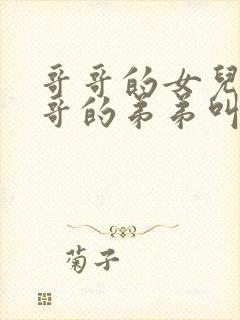 哥哥的女兒
哥的弟弟叫
菊子